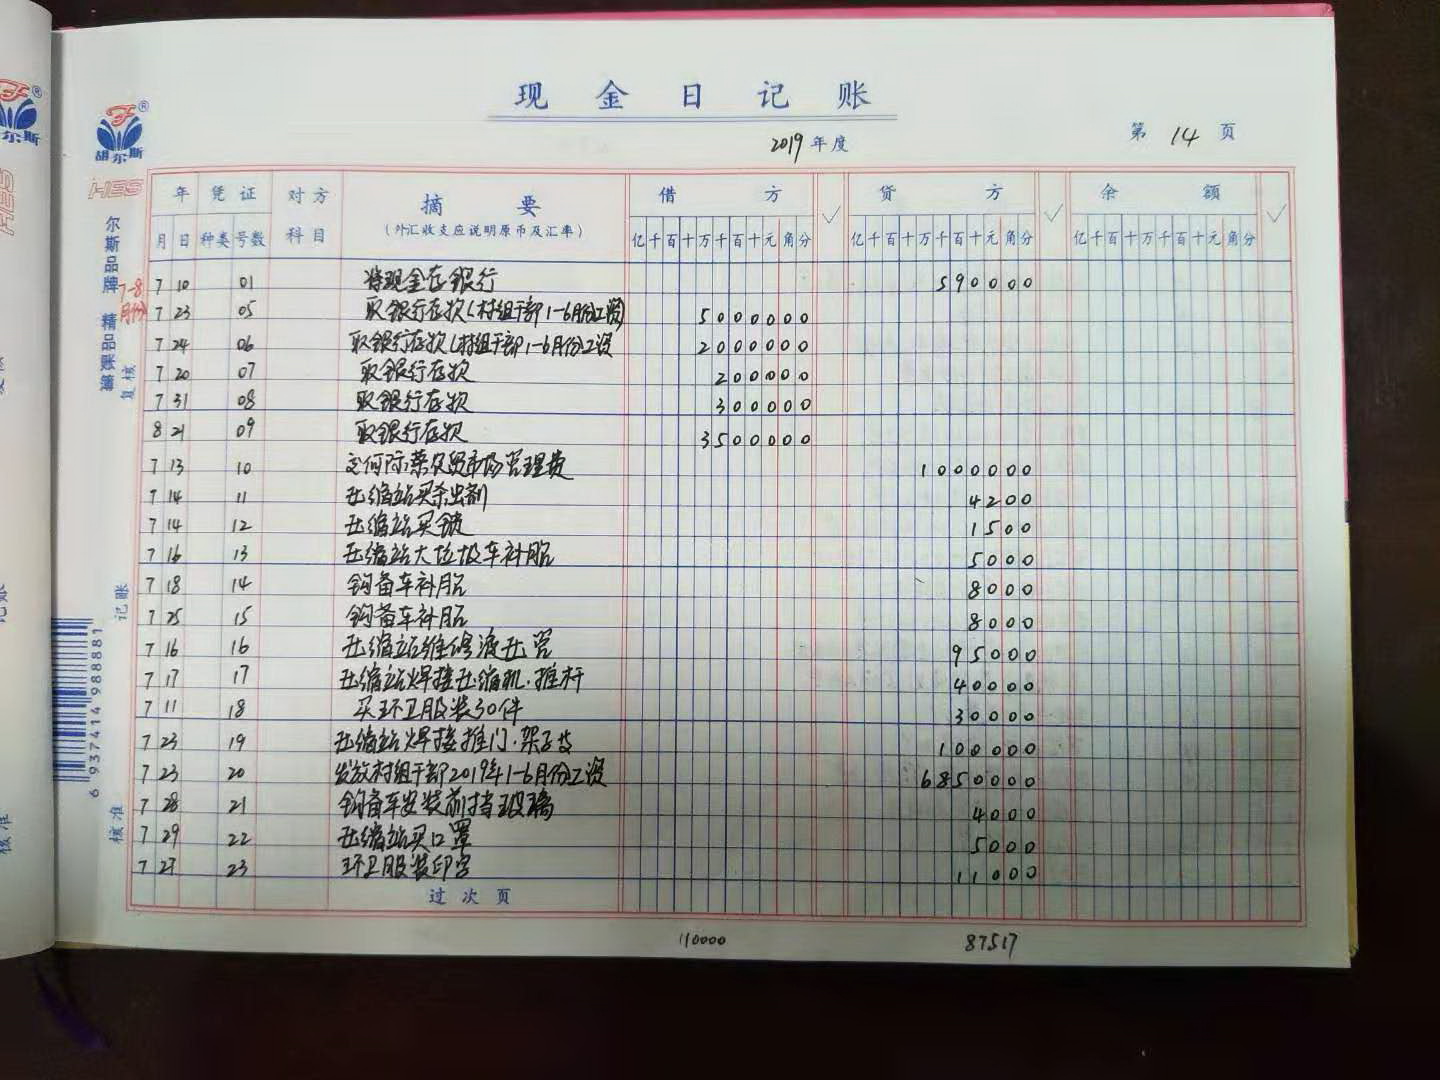 现金日记账
2019年度
第 14 页
胡尔斯
HES
尔斯品牌 精品账簿
7-8月份
复核
记账
核准
6 937414 988881
年 凭证 对方科目 摘要 借方 贷方 余额
月 日 种类 号数 (外汇收支应说明原币及汇率) 亿千百十万千百十元角分 亿千百十万千百十元角分 亿千百十万千百十元角分
7 10 01 将现金存银行 590000
7 23 05 取银行存款(村组干部1-6月份工资) 5000000
7 24 06 取银行存款(村组干部1-6月份工资 2000000
7 20 07 取银行存款 200000
7 31 08 取银行存款 300000
8 21 09 取银行存款 3500000
7 13 10 交何际荣农贸市场管理费 1000000
7 14 11 压缩站买杀虫剂 4200
7 14 12 压缩站买锁 1500
7 16 13 压缩站大垃圾车补胎 5000
7 18 14 钩备车补胎 8000
7 25 15 钩备车补胎 8000
7 16 16 压缩站维修液压管 95000
7 17 17 压缩站焊接压缩机.推杆 40000
7 11 18 买环卫服装30件 30000
7 23 19 压缩站焊接推门.架子 100000
7 23 20 发放村组干部2019年1-6月份工资 6850000
7 28 21 钩备车安装前挡玻璃 4000
7 29 22 压缩站买口罩 5000
7 27 23 环卫服装印字 11000
过次页
110000 87517